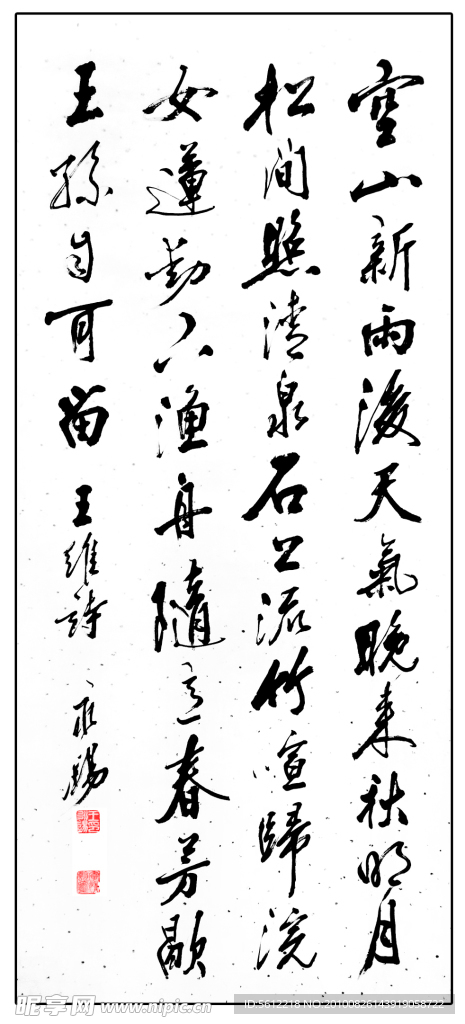 空山新雨後天氣晚来秋明月
松間照清泉石上流竹喧歸浣
女蓮動下漁舟隨意春芳歇
王孫自可留 王維詩
昵享网 www.nipic.cn
ID:5612218 NO:20100826143919058722